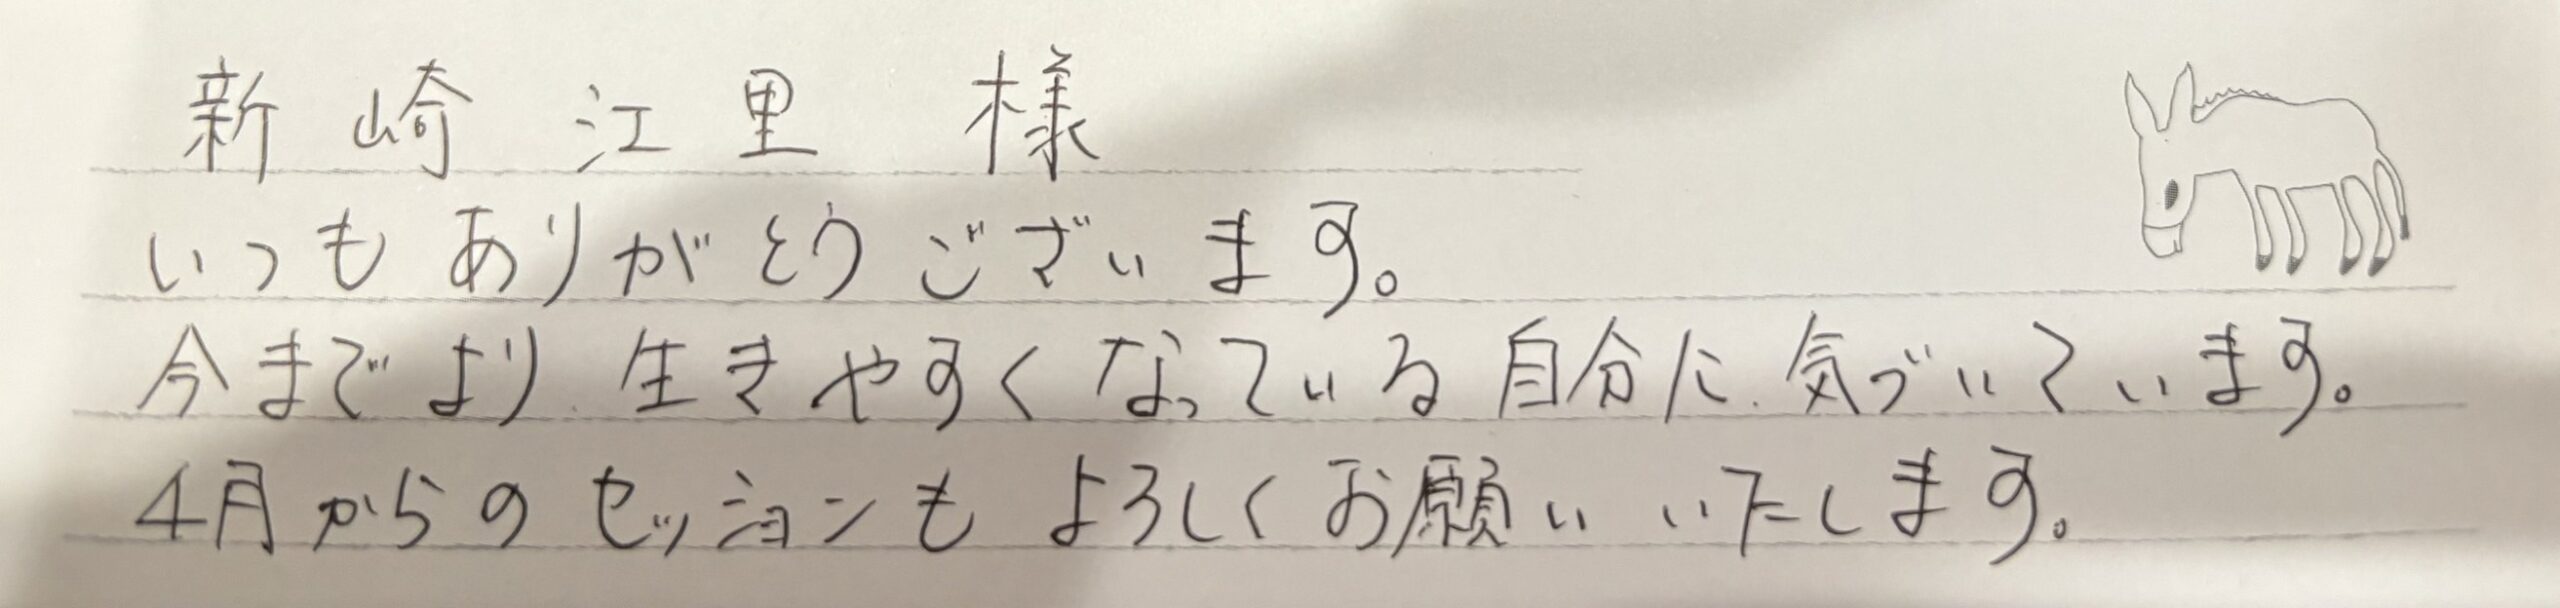 新崎 江里 様
いつもありがとうございます。
今までより生きやすくなっている自分に気づいています。
4月からのセッションもよろしくお願いいたします。